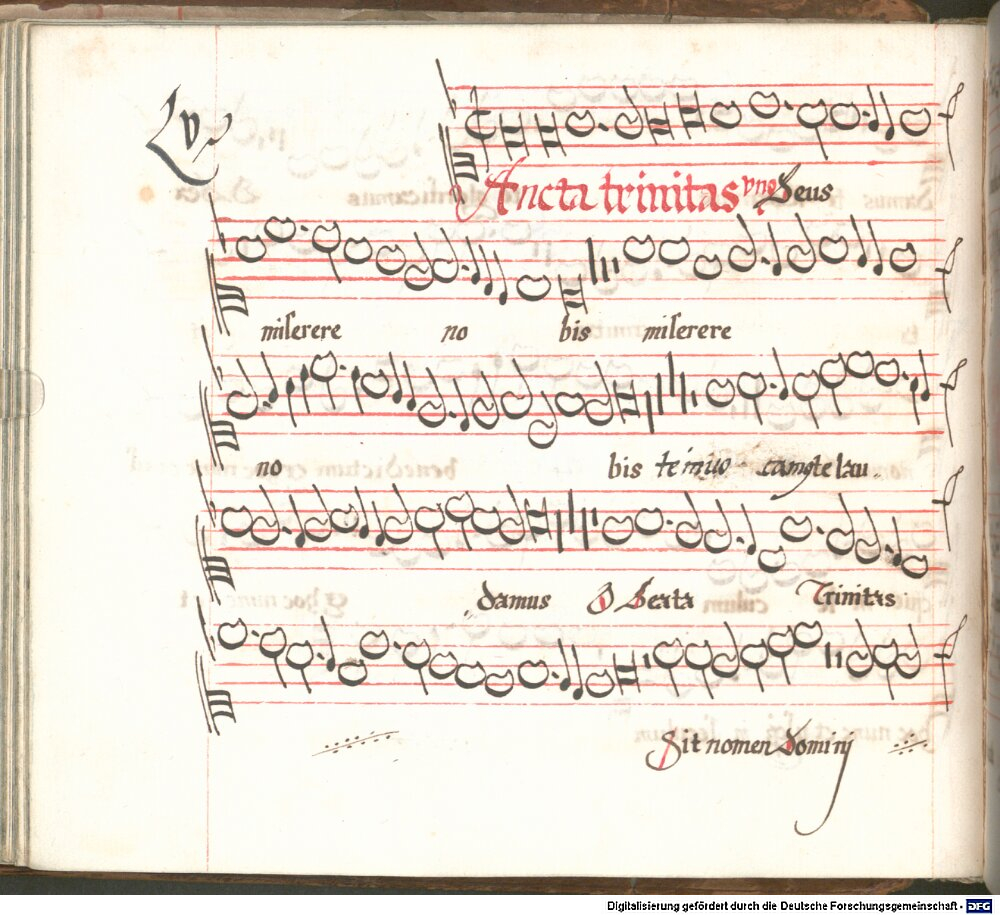 Lv
Ancta trinitas vnꝰ Deus
miserere no bis miserere
no bis te inuo camꝰ te lau
damus O Beata Trinitas
Sit nomen Dominj
Digitalisierung gefördert durch die Deutsche Forschungsgemeinschaft - DFG